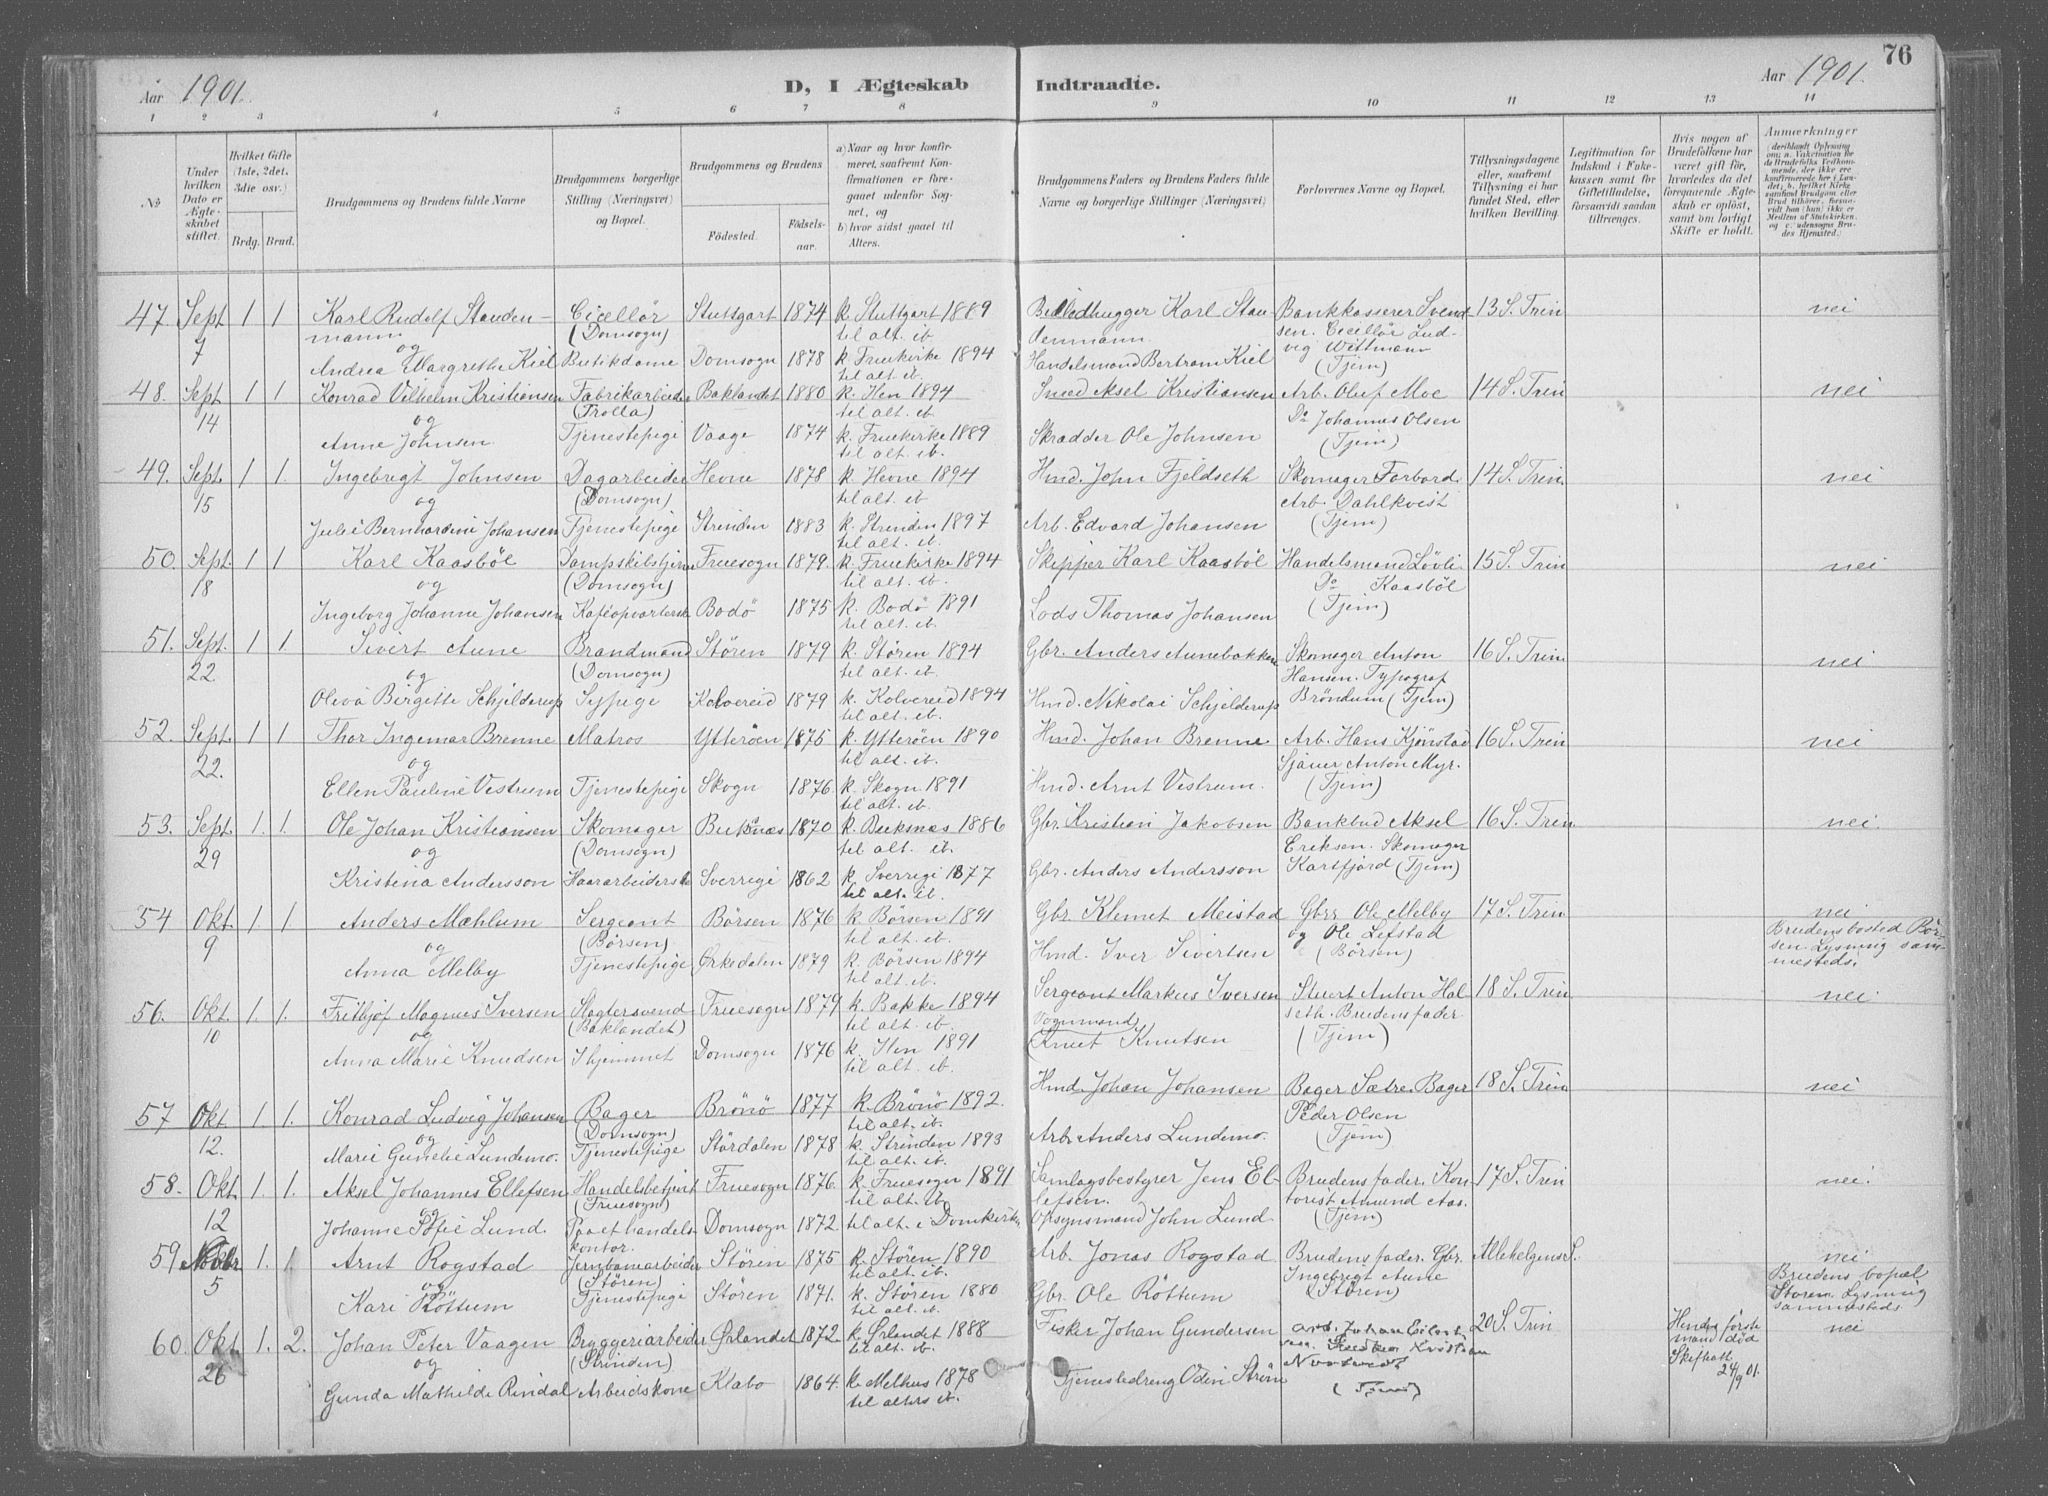 76
Aar 1901. D, I Ægteskab Indtraadte. Aar 1901.
1 2 3 4 5 6 7 8 9 10 11 12 13 14
№
Under hvilken Dato er Ægteskabet stiftet.
Hvilket Gifte (1ste, 2det, 3die osv.)
Brdg. Brud.
Brudgommens og Brudens fulde Navne
Brudgommens borgerlige Stilling (Næringsvei) og Bopæl.
Brudgommens og Brudens
Fødested. Fødselsaar.
a) Naar og hvor konfirmeret, saafremt Konfirmationen er foregaaet udenfor Sognet, og
b) hvor sidst gaaet til Alters.
Brudgommens Faders og Brudens Faders fulde Navne og borgerlige Stillinger (Næringsvei)
Forlovernes Navne og Bopæl.
Tillysningsdagene eller, saafremt Tillysning ei har fundet Sted, efter hvilken Bevilling.
Legitimation for Indskud i Enkekassen samt for Giftetilladelse, forsaavidt saadan tiltrænges.
Hvis nogen af Brudefolkene har været gift før, hvorledes da det foregaaende Ægteskab er opløst, samt om lovligt Skifte er holdt.
Anmærkninger
47. Sept 1 1 Karl Rudolf Stauden- Cicellör Stuttgart 1874 k. Stuttgart 1889 Billedhugger Karl Stau- Bankkasserer Svend- 13 S. Trin nei
7 mann (Domsogn) til alt. ib. denmann. sen. Cicellör Lud-
og vig Wittmann
Andrea Margrethe Kiel Butikdame Domsogn 1878 k. Fruekirke 1894 Handelsmand Bertram Kiel (Tjem)
til alt. ib.
48. Sept 1 1 Konrad Vilhelm Kristiansen Fabrikarbeider Baklandet 1880 k. Hen 1894 Smed Aksel Kristiansen Arb. Oluf Moe 14 S. Trin nei
14 og (Trolla) til alt. ib. Do Johannes Olsen
Anne Johnsen Tjenestepige Vaage 1874 k. Fruekirke 1889 Skradder Ole Johnsen (Tjem)
til alt. ib.
49. Sept. 1 1. Ingebrigt Johnsen Dagarbeider Hevne 1878 k. Hevne 1894 Hmd. John Fjeldseth Skomager Forbord. 14 S. Trin. nei
15 og (Domsogn) til alt. ib Arb. Dahlkvist
Julie Bernhardine Johansen Tjenestepige Strinden 1883 k. Strinden 1897 Arb. Edvard Johansen (Tjem)
til alt. ib.
50. Sept. 1 1 Karl Kaasböl Dampskibstj. Fruesogn 1879. k. Fruekirke 1894 Skipper Karl Kaasböl Handelsmand Lövli 15 S. Trin nei
18 og (Domsogn) til alt. ib. Do Kaasböl
Ingeborg Johanne Johansen Bodö 1875 k. Bodö 1891 Lods Thomas Johansen (Tjem)
til alt. ib.
51. Sept. 1 1. Sivert Aune Brandmand Stören 1879 k. Stören 1894 Gbr. Anders Aunebakken Skomager Anton 16 S. Trin nei
22 og (Domsogn) til alt. ib. Hansen. Typograf
Oliva Birgitte Schjelderup Sypige Kolvereid 1879 k. Kolvereid 1894 Hmd. Nikolai Schjelderup Bröndum (Tjem)
til alt. ib.
52. Sept. 1 1 Thor Ingemar Brenne Matros Ytteröen 1875 k. Ytteröen 1890 Hmd. Johan Brenne Arb. Hans Kjönstad 16 S. Trin nei
22. og til alt. ib. Sjauer Anton Myr.
Ellen Pauline Vestrum Tjenestepige Skogn 1876. k. Skogn 1891 Hmd. Arnt Vestrum. (Tjem)
til alt. ib.
53. Sept. 1. 1. Ole Johan Kristiansen Skomager Buksnæs 1870 k. Buksnæs 1886 Gbr. Kristian Jakobsen Bankbud Aksel 16 S. Trin. nei.
29 og (Domsogn) til alt. ib. Eriksen. Skomager
Kristena Andersson Haararbeiderske Sverrige 1862 k. Sverrige 1877 Gbr. Anders Andersson Kartfjord (Tjem)
til alt. ib.
54 Okt. 1. 1. Anders Mæhlum Sergeant Börsen 1876 k. Börsen 1891 Gbr. Klemet Meistad Gbr. Ole Melby 17 S. Trin nei
9 og (Börsen) til alt. ib. og Ole Lefstad Brudens bosted Bör-
Anna Melby Tjenestepige Ørkedalen 1879 k. Börsen 1894 Hmd. Iver Sivertsen (Börsen) sen. Lysning sam-
til alt. ib. mesteds.
56. Okt. 1. 1. Fritjof Magnus Iversen Slagtersvend Fruesogn 1879 k. Bakke 1894 Sergeant Markus Iversen Stuert Anton Hal- 18 S. Trin nei
10 og (Baklandet) til alt. ib. Vognmand seth. Brudens fader
Anna Marie Knudsen I hjemmet Domsogn 1876 k. Hen 1891 Knut Knutsen (Tjem)
til alt. ib.
57 Okt 1. 1. Konrad Ludvig Johansen Bager Brönö 1877 k. Brönö 1892. Hmd. Johan Johansen Bager Sætre. Bager 18 S. Trin nei
12. og (Domsogn) til alt. ib. Peder Olsen
Marie Gunelie Lundemo. Tjenestepige Stördalen 1878 k. Strinden 1893 Arb. Anders Lundemo. (Tjem)
til alt. ib.
58. Okt. 1. 1. Aksel Johannes Ellefsen Handelsbetjent Fruesogn 1876. k. Fruesogn 1891 Samlagsbestyrer Jens El- Brudens fader. Kon- 17 S. Trin nei.
12 og (Fruesogn) til alt. ib. lefsen. torist Amund Aas.
Johanne Sofie Lund. Paa et handels- Domsogn 1872. til alt. i Domkirken Opsynsmand John Lund (Tjem)
kontor.
59 Novbr 1. 1. Arnt Rogstad Jernbanearbeider Stören 1875 k. Stören 1890 Arb. Jonas Rogstad Brudens fader. Gbr. Allehelgens S. nei
5 og (Stören) til alt. ib. Ingebrigt Aune Brudens bopæl
Kari Röttum Tjenestepige Stören 1871. k. Stören 1880 Gbr. Ole Röttum (Stören) Stören. Lysning
til alt. ib. sammesteds
60. Okt. 1. 2. Johan Peter Vaagen Bryggeriarbeider Ørlandet 1872. k. Ørlandet 1888 Fisker Johan Gundersen Arb. Johan Eilert- 20 S. Trin Hendes förste nei
26 og (Strinden) til alt. ib. sen. Kristian mand död
Gunda Mathilde Rindal Arbeidskone Klæbo 1864. k. Melhus 1878 Tjenestedreng Odin Ström (Tjem) Skifteatt.
til alters ib. 24/9 01.